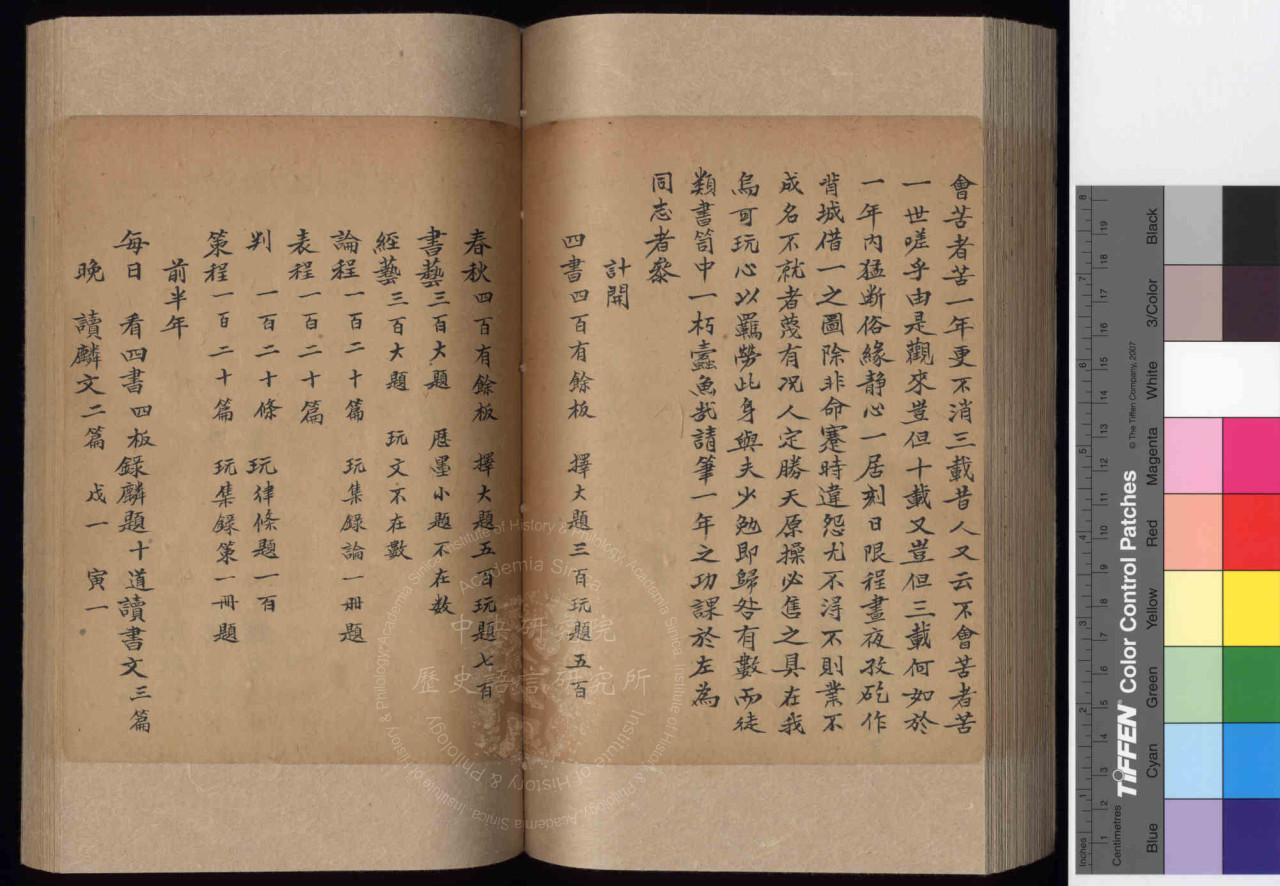 會苦者苦一年更不消三載昔人又云不會苦者苦
一世嗟乎由是觀來豈但十載又豈但三載何如於
一年內猛斷俗緣静心一居刻日限程晝夜孜矻作
背城借一之圖除非命蹇時違怨尤不淂不則業不
成名不就者蔑有况人定勝天原操必售之具在我
烏可玩心以羈勞此身與夫少勉即歸咎有數而徒
類書笥中一朽蠹魚㢤請筆一年之功課於左為
同志者藜
計開
四書四百有餘板 擇大題三百玩題五百
春秋四百有餘板 擇大題五百玩題七百
書藝三百大題 歷墨小題不在数
經藝三百大題 玩文不在數
論程一百二十篇 玩集録論一册題
表程一百二十篇
判 一百二十條 玩律條題一百
策程一百二十篇 玩集録策一冊題
前半年
每日 看四書四板錄麟題十道讀書文三篇
晚 讀麟文二篇 戊一 寅一
中央研究院
歷史語言研究所
Academia Sinica
Institute of History & Philology, Academia Sinica
Black
3/Color
White
Magenta
Red
Yellow
Green
Cyan
Blue
TIFFEN Color Control Patches
© The Tiffen Company, 2007
Inches
Centimetres